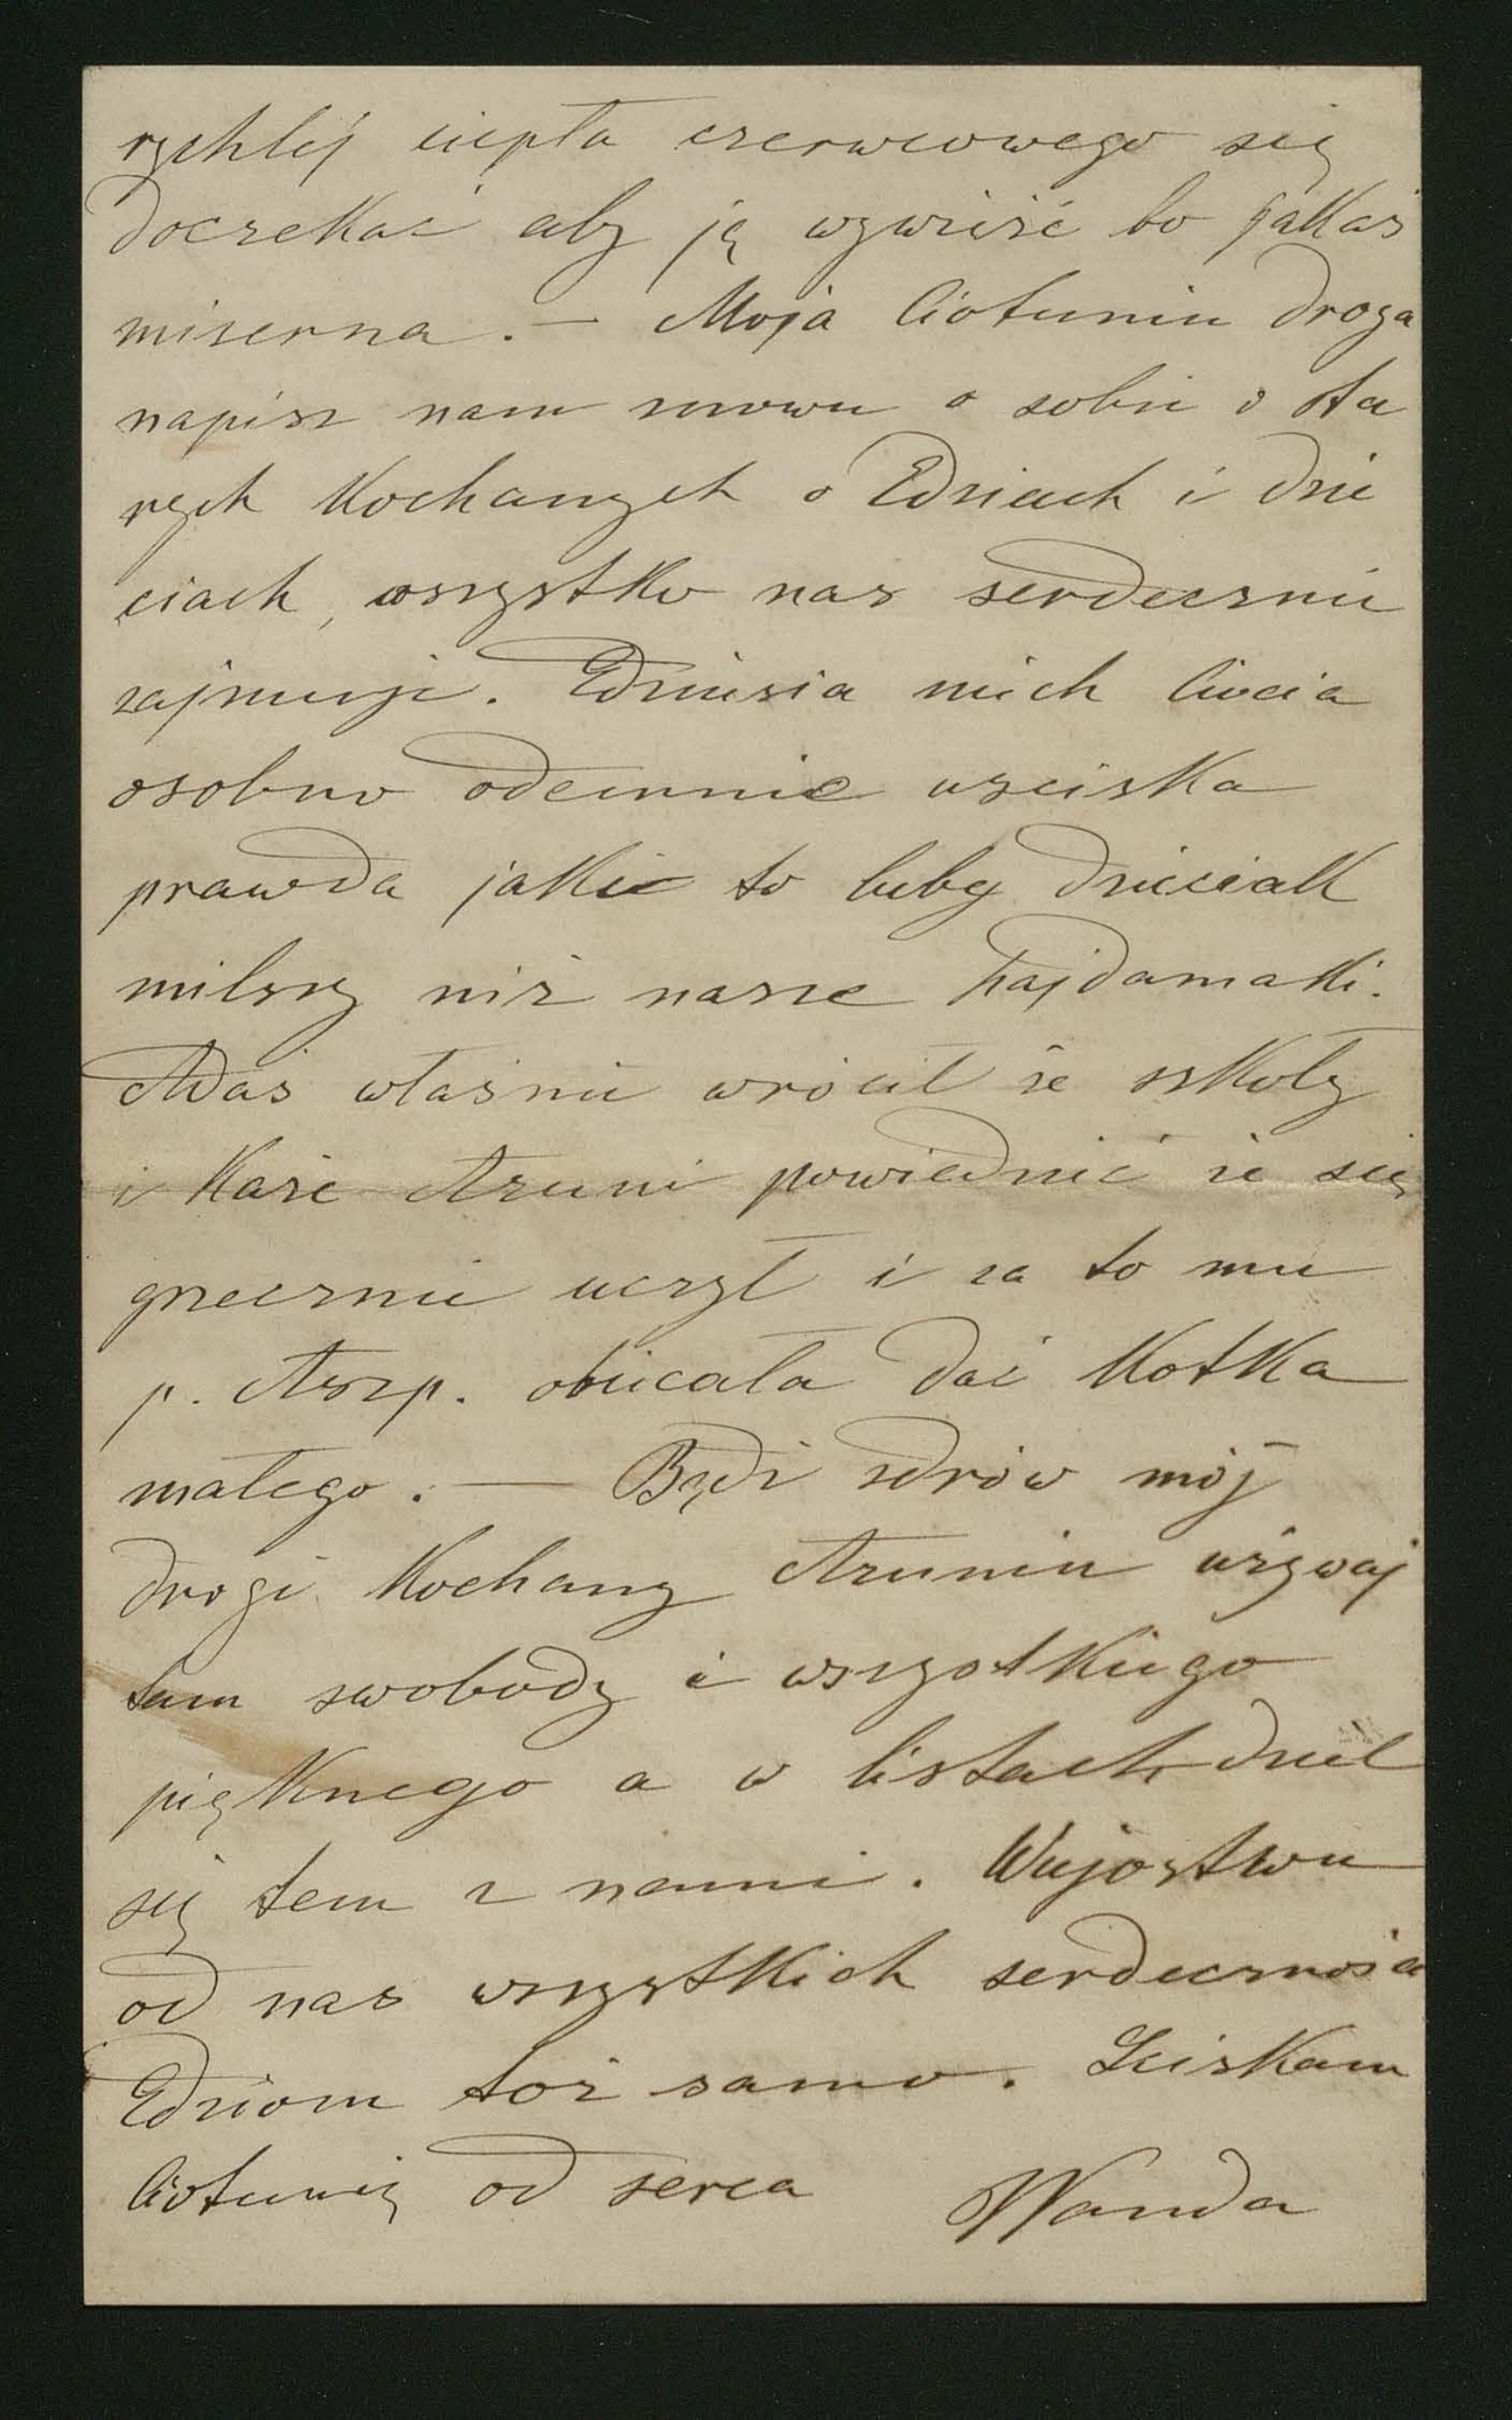 rychlej ciepła czerwcowego się
doczekać aby ją wywieść bo jakaś
mizerna. — Moja Ciotuniu droga
napisz nam znowu o sobie o sta
rych kochanych o Edziach i dzie
ciach, wszystko nas serdecznie
zajmuje. Edziusia niech Ciocia
osobno odemnie uściska
prawda jakie to luby dzieciak
milszy niż nasze hajdamaki.
Adaś właśnie wrócił ze szkoły
i każe Azuni powiedzieć że się
grzecznie uczył i za to mu
p. Aszp. obiecała dać kotka
małego. — Bądź zdrów mój
drogi kochany Azuniu używaj
tam swobody i wszystkiego
pięknego a w listach dziel
się tem z nami. Wujostwu
od nas wszystkich serdeczności
Edziom toż samo. Ściskam
Ciotunię od serca Wanda